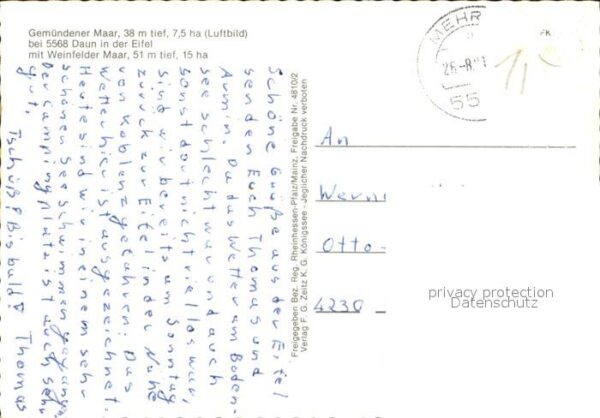 Gemündener Maar, 38 m tief, 7,5 ha (Luftbild)
bei 5568 Daun in der Eifel
mit Weinfelder Maar, 51 m tief, 15 ha
Schöne Grüße aus der Eifel
senden Euch Thomas und
Armin. Da das Wetter am Boden-
see schlecht war und auch
sonst dort nicht viel los war,
sind wir bereits am Sonntag
zurück zur Eifel in der Nähe
von Koblenz gefahren. Das
Wetter hier ist ausgezeichnet.
Heute sind wir in einem sehr
schönen See schwimmen gegangen.
Der Campingplatz ist auch sehr
gut. Tschüß! Bis bald! Thomas
Freigegeben Bez. Reg. Rheinhessen-Pfalz/Mainz, Freigabe Nr. 4810/2
Verlag F. G. Zeitz K. G. Königssee - Jeglicher Nachdruck verboten
MEHR
55
An
Werni
Otto-
4230
privacy protection
Datenschutz